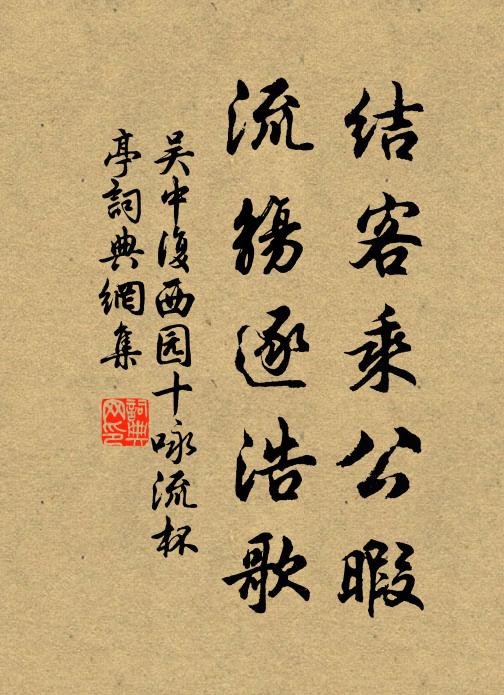 结客乘公暇
流觞逐浩歌
吴中复西园十咏流杯
亭詞典網集
詞典
网印